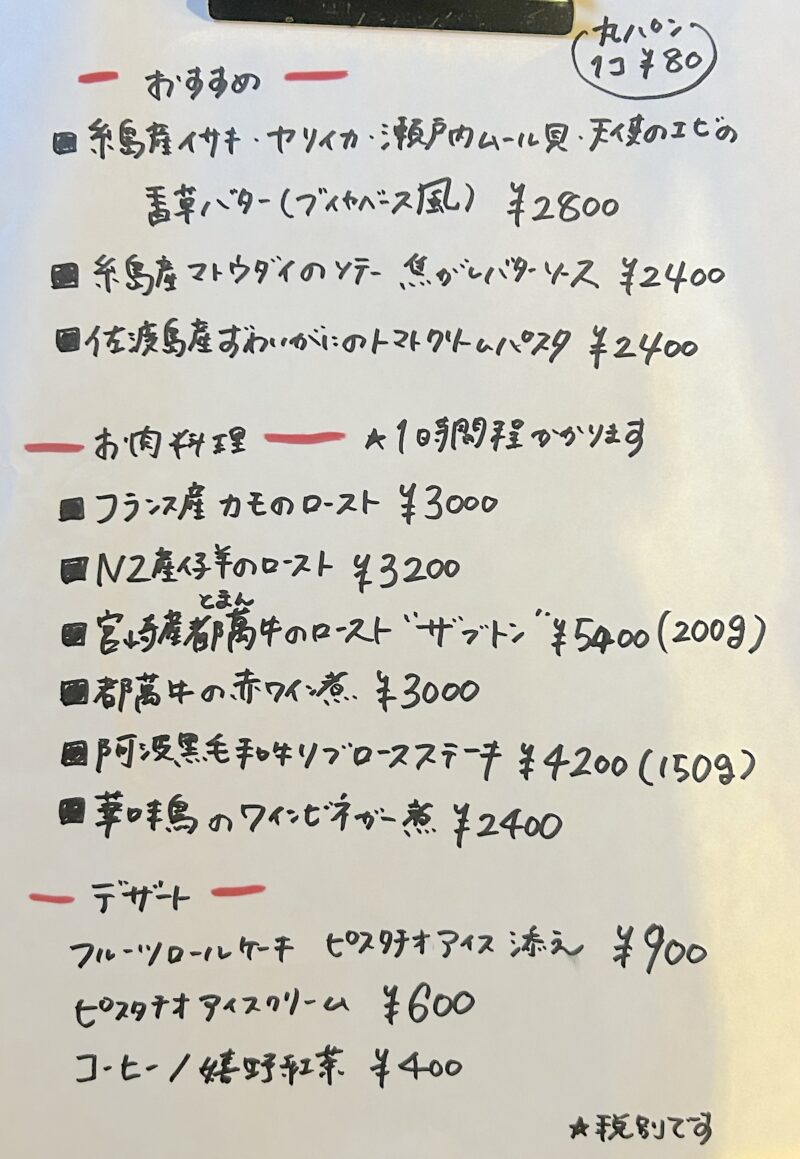 丸パン
1コ ¥80
おすすめ
■ 糸島産イサキ・ヤリイカ・瀬戸内ムール貝・天使のエビの
香草バター(ブイヤベース風) ¥2800
■ 糸島産マトウダイのソテー 焦がしバターソース ¥2400
■ 佐渡島産ずわいがにのトマトクリームパスタ ¥2400
お肉料理 ★1時間程かかります
■ フランス産カモのロースト ¥3000
■ NZ産仔羊のロースト ¥3200
とまん
■ 宮崎産都萬牛のロースト "ザブトン" ¥5400(200g)
■ 都萬牛の赤ワイン煮 ¥3000
■ 阿波黒毛和牛リブロースステーキ ¥4200(150g)
■ 華味鳥のワインビネガー煮 ¥2400
デザート
フルーツロールケーキ ピスタチオアイス添え ¥900
ピスタチオアイスクリーム ¥600
コーヒー/嬉野紅茶 ¥400
★税別です